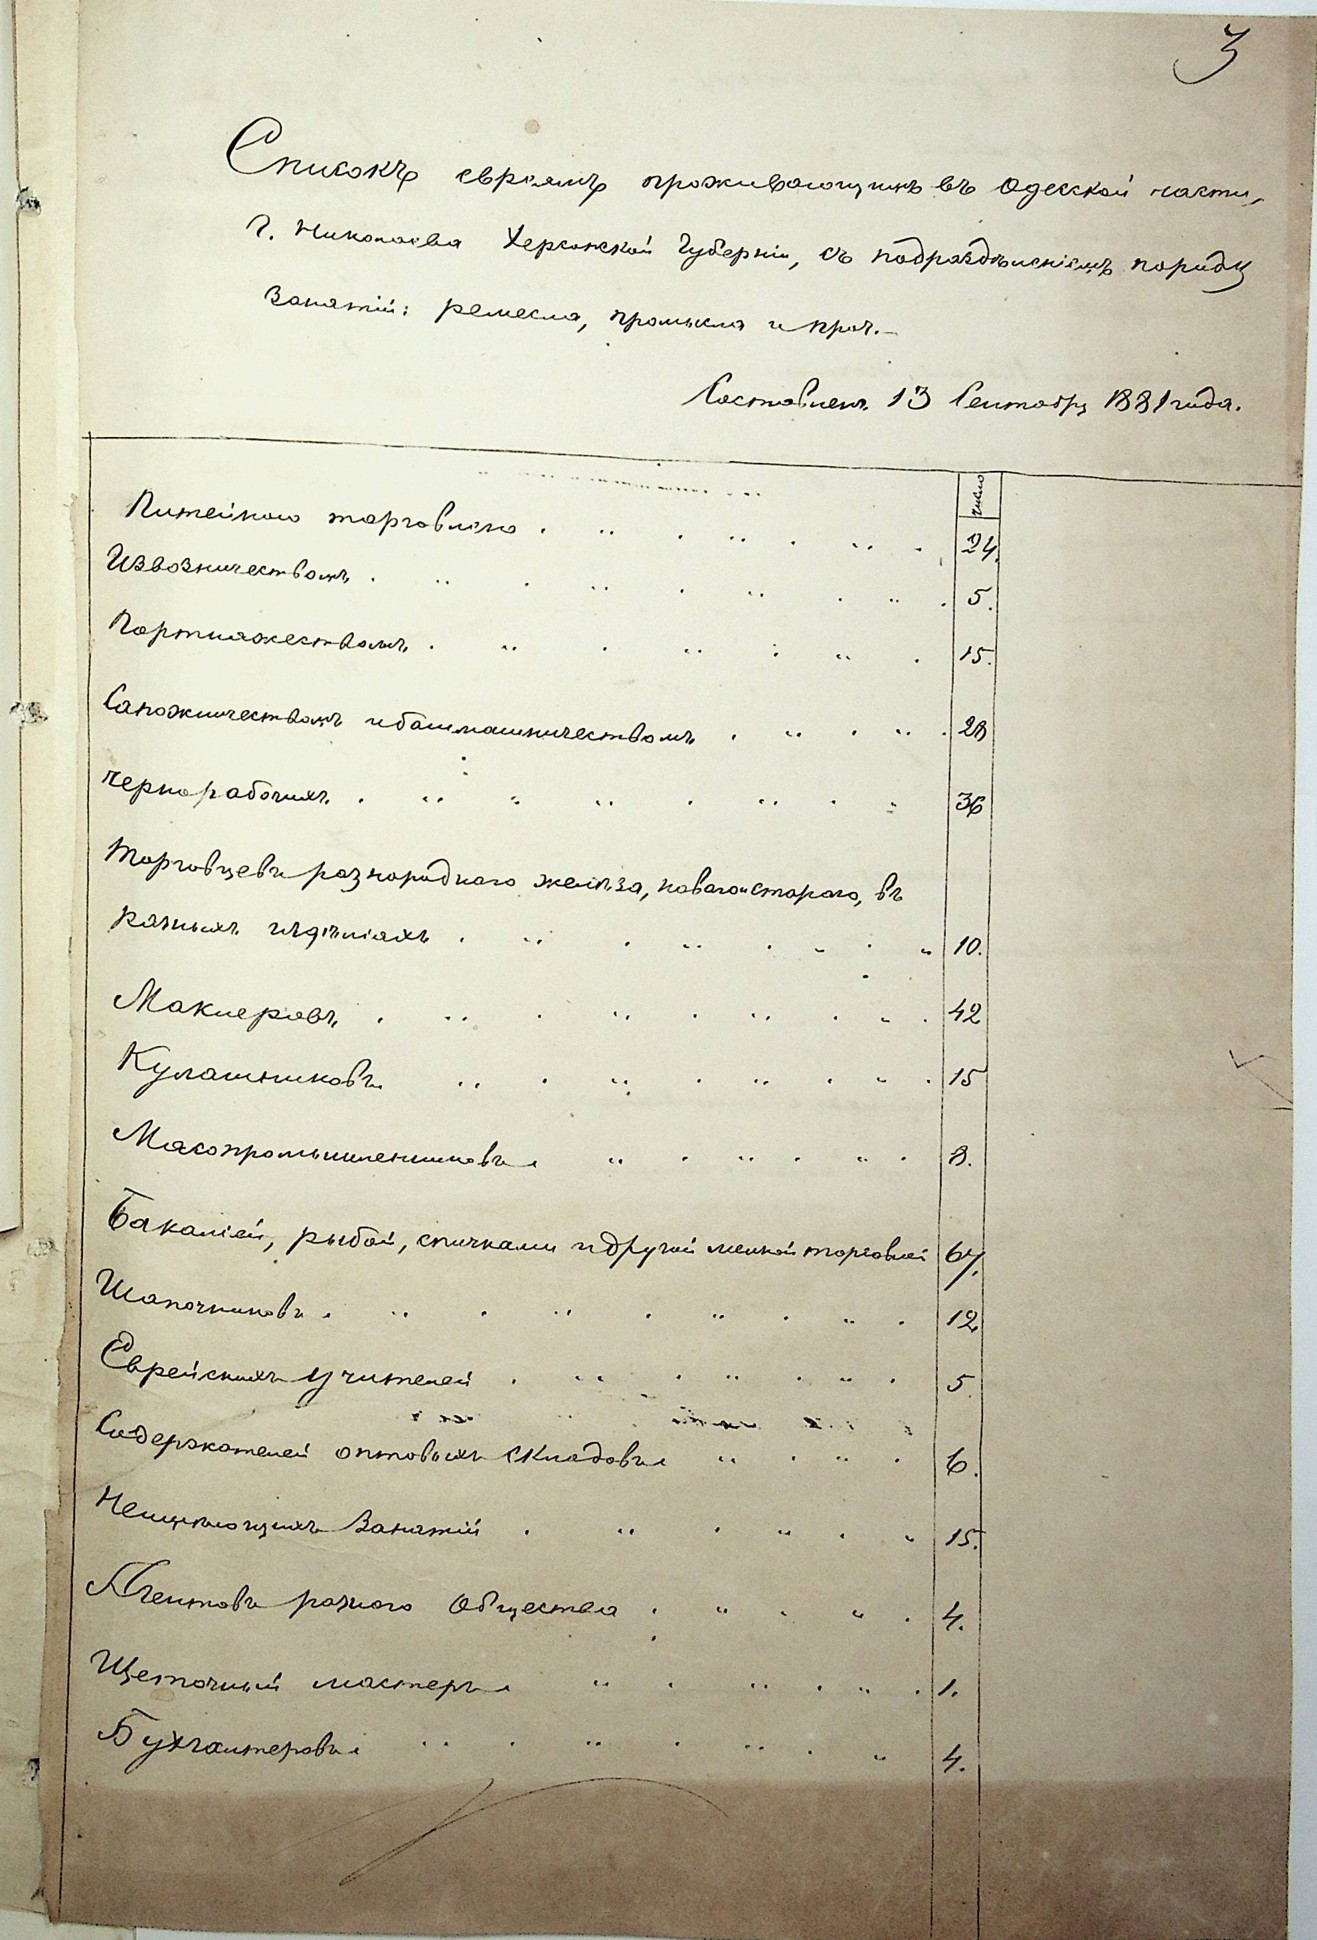 3
Списокъ евреямъ проживающимъ въ Одесской части,
г. Николаева Херсонской Губерніи, съ подраздѣленіемъ породу
занятій: ремесла, промысла и проч.
Составленъ 13 Сентября 1881 года.
число
Питейною торговлею 24.
Извозничествомъ 5.
Портняжествомъ 15.
Сапожничествомъ и башмашничествомъ 28
Чернорабочихъ 36
Торговцевъ разнороднаго желѣза, новаго и стараго, въ
разныхъ издѣліяхъ 10.
Маклеровъ 42
Кулашниковъ 15
Мясопромышленниковъ 8.
Бакаліей, рыбой, спичками и другой мелкой торговлей 67.
Шапочниковъ 12
Еврейскихъ учителей 5
Содержателей оптовыхъ складовъ 6.
Неимѣющихъ занятій 15.
Агентовъ разного Общества 4.
Щеточный мастеръ 1.
Бухгалтеровъ 4.